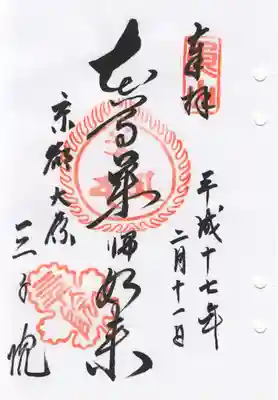 奉拝
平成十七年
二月十一日
本尊薬師如来
京都大原
三千院